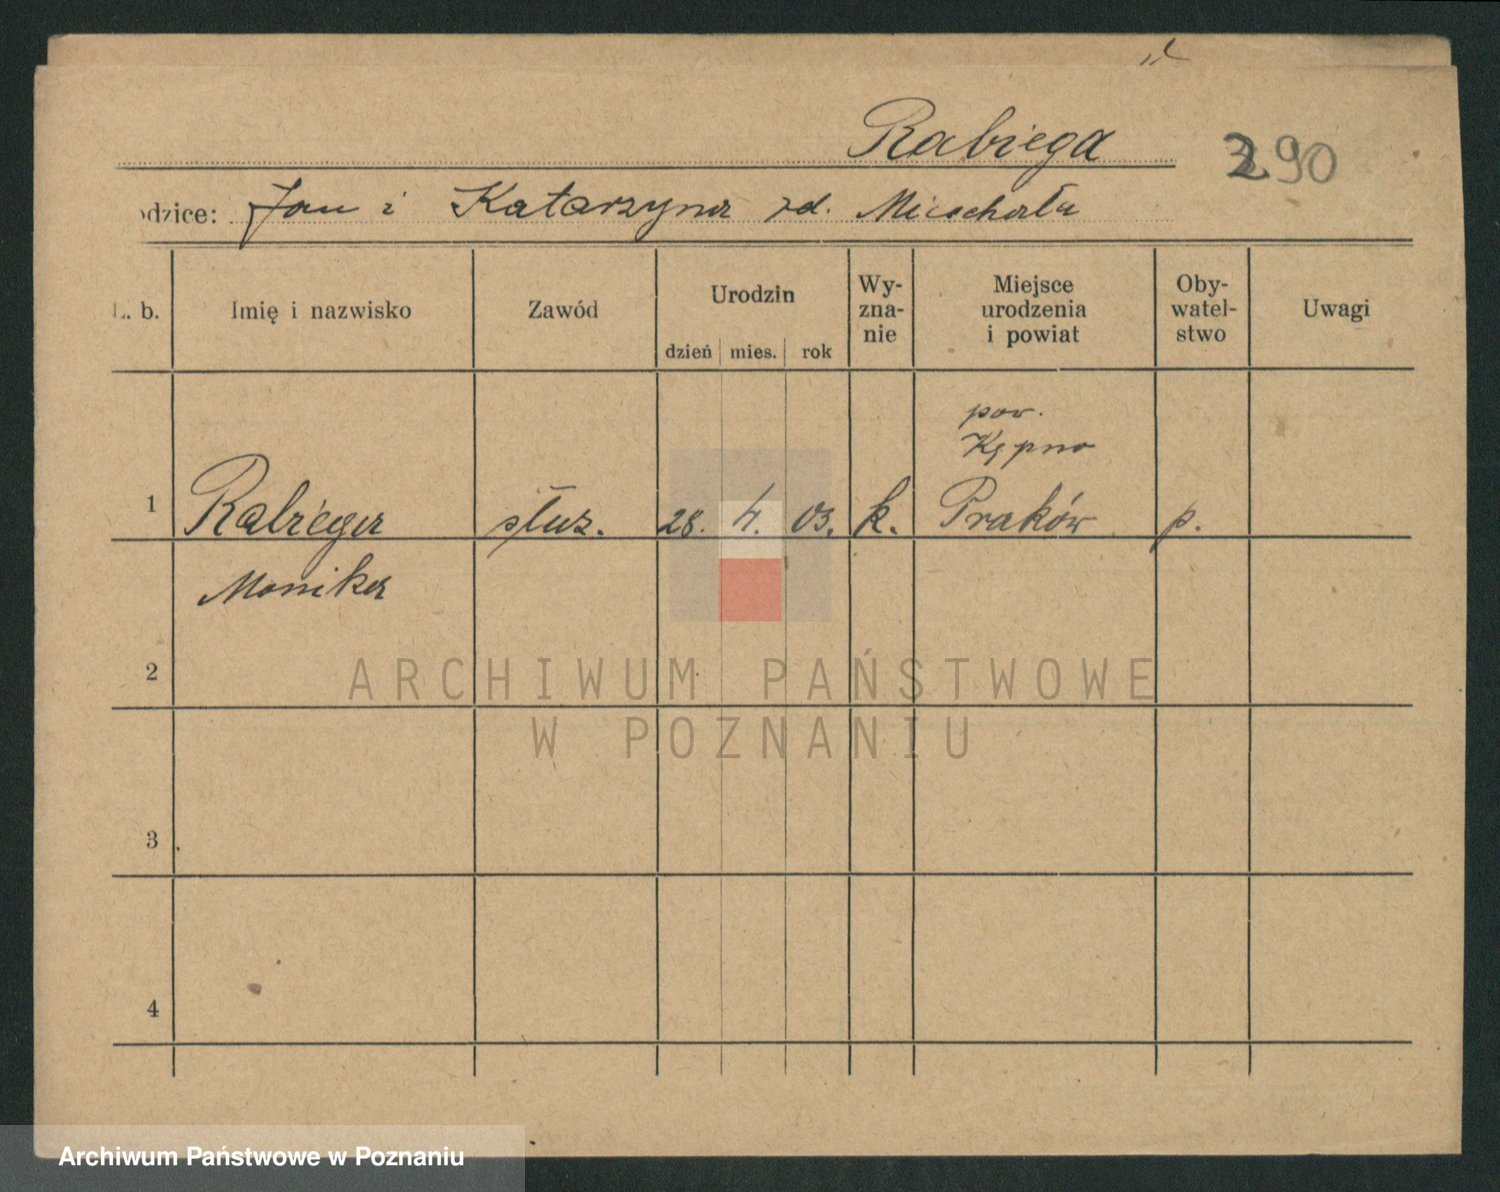 Rabiega
290
odzice: Jan i Katarzyna zd.
L. b.
Imię i nazwisko
Zawód
Urodzin
dzień mies. rok
Wy-
zna-
nie
Miejsce
urodzenia
i powiat
Oby-
watel-
stwo
Uwagi
pow.
Kępno
1 Rabiega służ. 28. 4. 03. k. Praków p.
Monika
2
3
4
ARCHIWUM PAŃSTWOWE
W POZNANIU
Archiwum Państwowe w Poznaniu